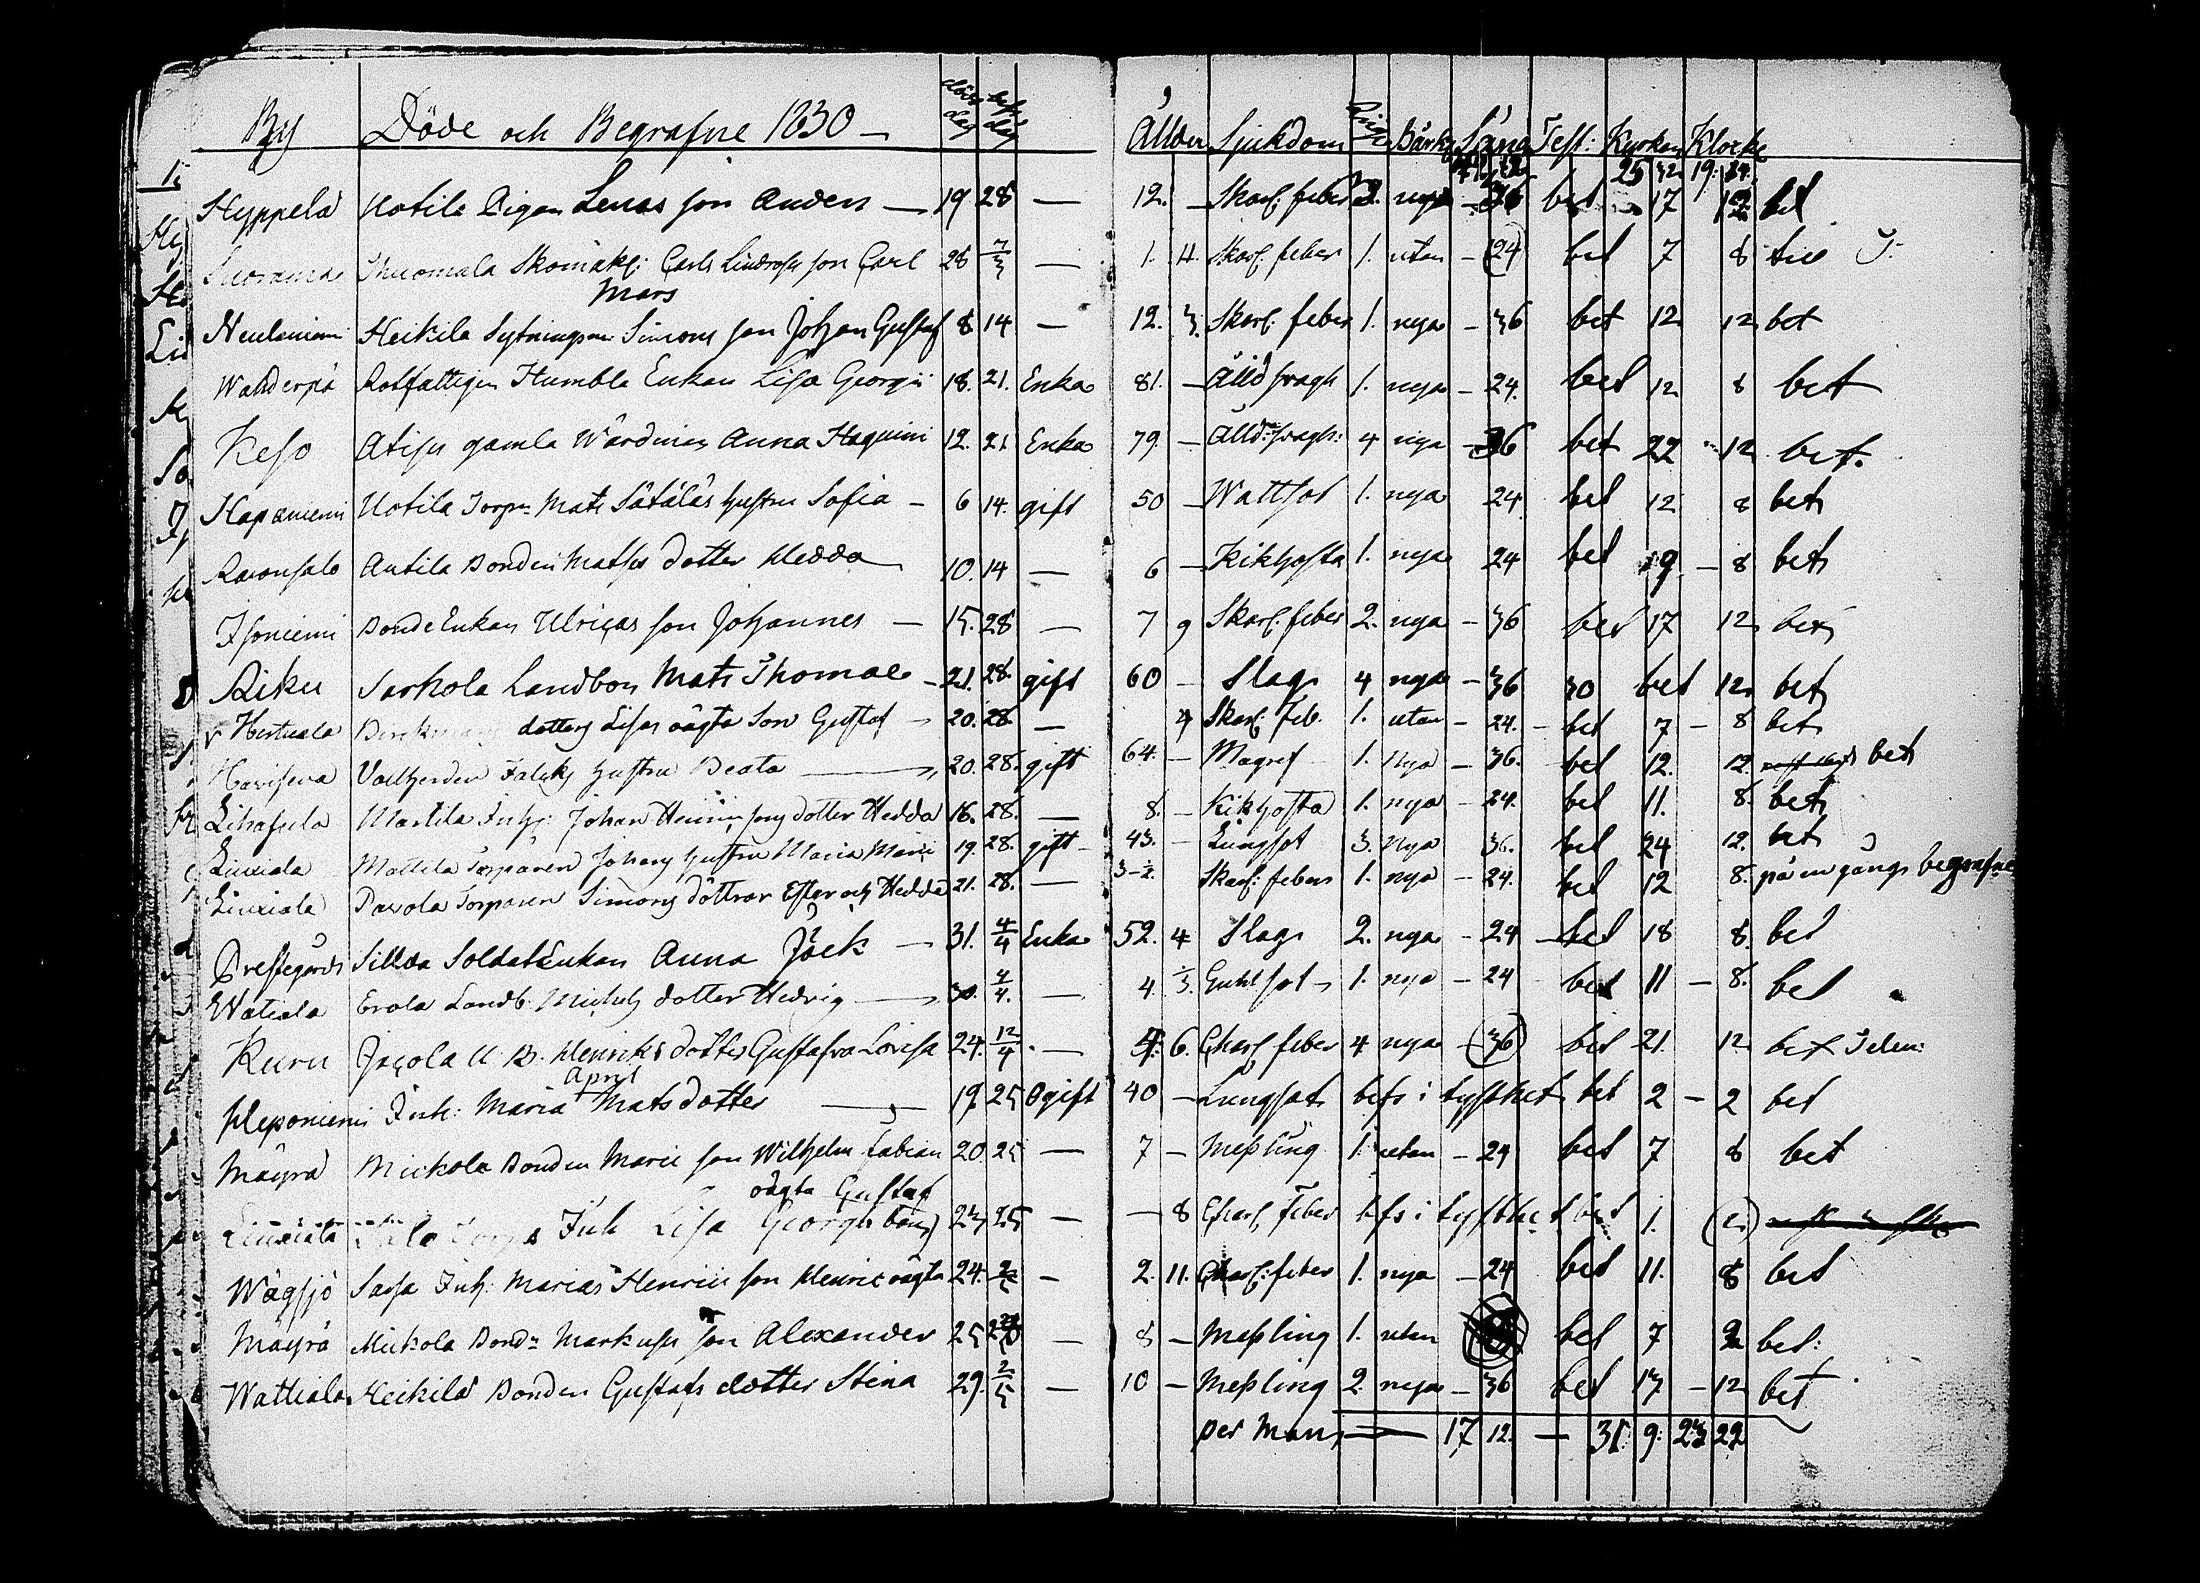 By Döde och Begrafne 1830 — döds dag begr dag Ålder Sjukdom Ringn Bårkl Sång Test: Kyrkan Klocke
25 32 19: 24.
Hyppelä Uotila Pigan Lenas son Anders — 19 28 — 12. — Skarl. feber 2. nya — 36 bet 17 12 bet
Thuomala Skomak: Carls Lindrofs son Carl 28 7/3 — 1. 4. Skarl. feber 1. utan — (24) bet 7 8
Mars
Neulaniemi Heikila Sytningsm Simons son Johan Gustaf 8 14 — 12. 3. Skarl. feber 1. nya — 36 bet 12 12 bet
Wahderpä Rotfattigen Humbla Enkan Lisa Georgii 18. 21. Enka 81. — 1. nya — 24. bet 12 8 bet
Keso gamla Wärdinan Anna Haquini 12. 21 Enka 79. — 4 nya — 36 bet 22 12 bet.
Hapaniemi Uotila Torp: Mats Sätäläs hustru Sofia — 6 14. gift 50 — Wattsot 1. nya 24 bet 12 8 bet
Antila Bonden Matses dotter Hedda 10. 14 — 6 — Kikhosta 1. nya 24 bet 19 — 8 bet
Isoniemi BondeEnkan Ulricas son Johannes — 15. 28 — 7 9 Skarl. feber 2. nya — 36 bet 17 12 bet
Riku Sarkola Landbon Mats Thomae — 21. 28. gift 60 — Slag 4 nya — 36 30 bet 12 bet
Hertuala dotters Lisas oägta Son Gustaf — 20. 28 — 4 Skarl. feb. 1. utan — 24. — bet 7 — 8 bet
Vallherden Falcks hustru Beata — 20. 28. gift 64. — Magref 1. nya — 36. bet 12. 12. bet
Lihasula Martila Inh: Johan Henrikssons dotter Hedda 16. 28. — 8. — Kikhosta 1. nya — 24. bet 11. 8. bet
Liuxiala Mattila Torparen Johans hustru Maria 19. 28. gift — 43. — Lungsot 3. nya 36. bet 24 12. bet
Liuxiala Pavola Torparen Simons döttrar Ester och Hedda 21. 28. — 3-2. Skarl. feber 1. nya — 24. bet 12 8. på en gång begrafne
Prestegårds Silda SoldatEnkan Anna Jack — 31. 4/4 Enka 52. 4 Slag 2. nya — 24 — bet 18 8. bet
Watiala Erola Landb. Michels dotter Hedvig — 30. 4/4. — 4. 1/3. Guhlsot — 1. nya — 24 bet 11 — 8. bet
Kuru Jacola U. B. Henriks dotter Gustafva Lovisa 24. 12/4. — 4. 6. Skarl. feber 4 nya — (36) bet 21. 12 bet
April
Heponiemi Inh: Maria Matsdotter — 19 25 Ogift 40 — Lungsot befs i tysthet bet 2 — 2 bet
Mäyrä Mickola Bonden Marci son Wilhelm Fabian 20. 25 — 7 — Messling 1. utan — 24 bet 7 8 bet
oägta Gustaf
Liuxiala Inh Lisa Georgii barn 23 25 — — 8 Skarl. feber befs i tysthet bet 1. (2.)
Wägsjö Sassa Inh. Marias Henrici son Henric oägta 24. 2/5 — 2. 11. Skarl: feber 1. nya — 24 bet 11. 8 bet
Mäyrä Mickola Bond: Markuses son Alexander 25 — 8 — Messling 1. utan bet 7 2 bet:
Wattiala Heikilä Bonden Gustafs dotter Stina 29. 2/5 — 10 — Messling 2. nya — 36 bet 17 — 12 bet
per Mars — 17 12. — 31: 9: 23 22